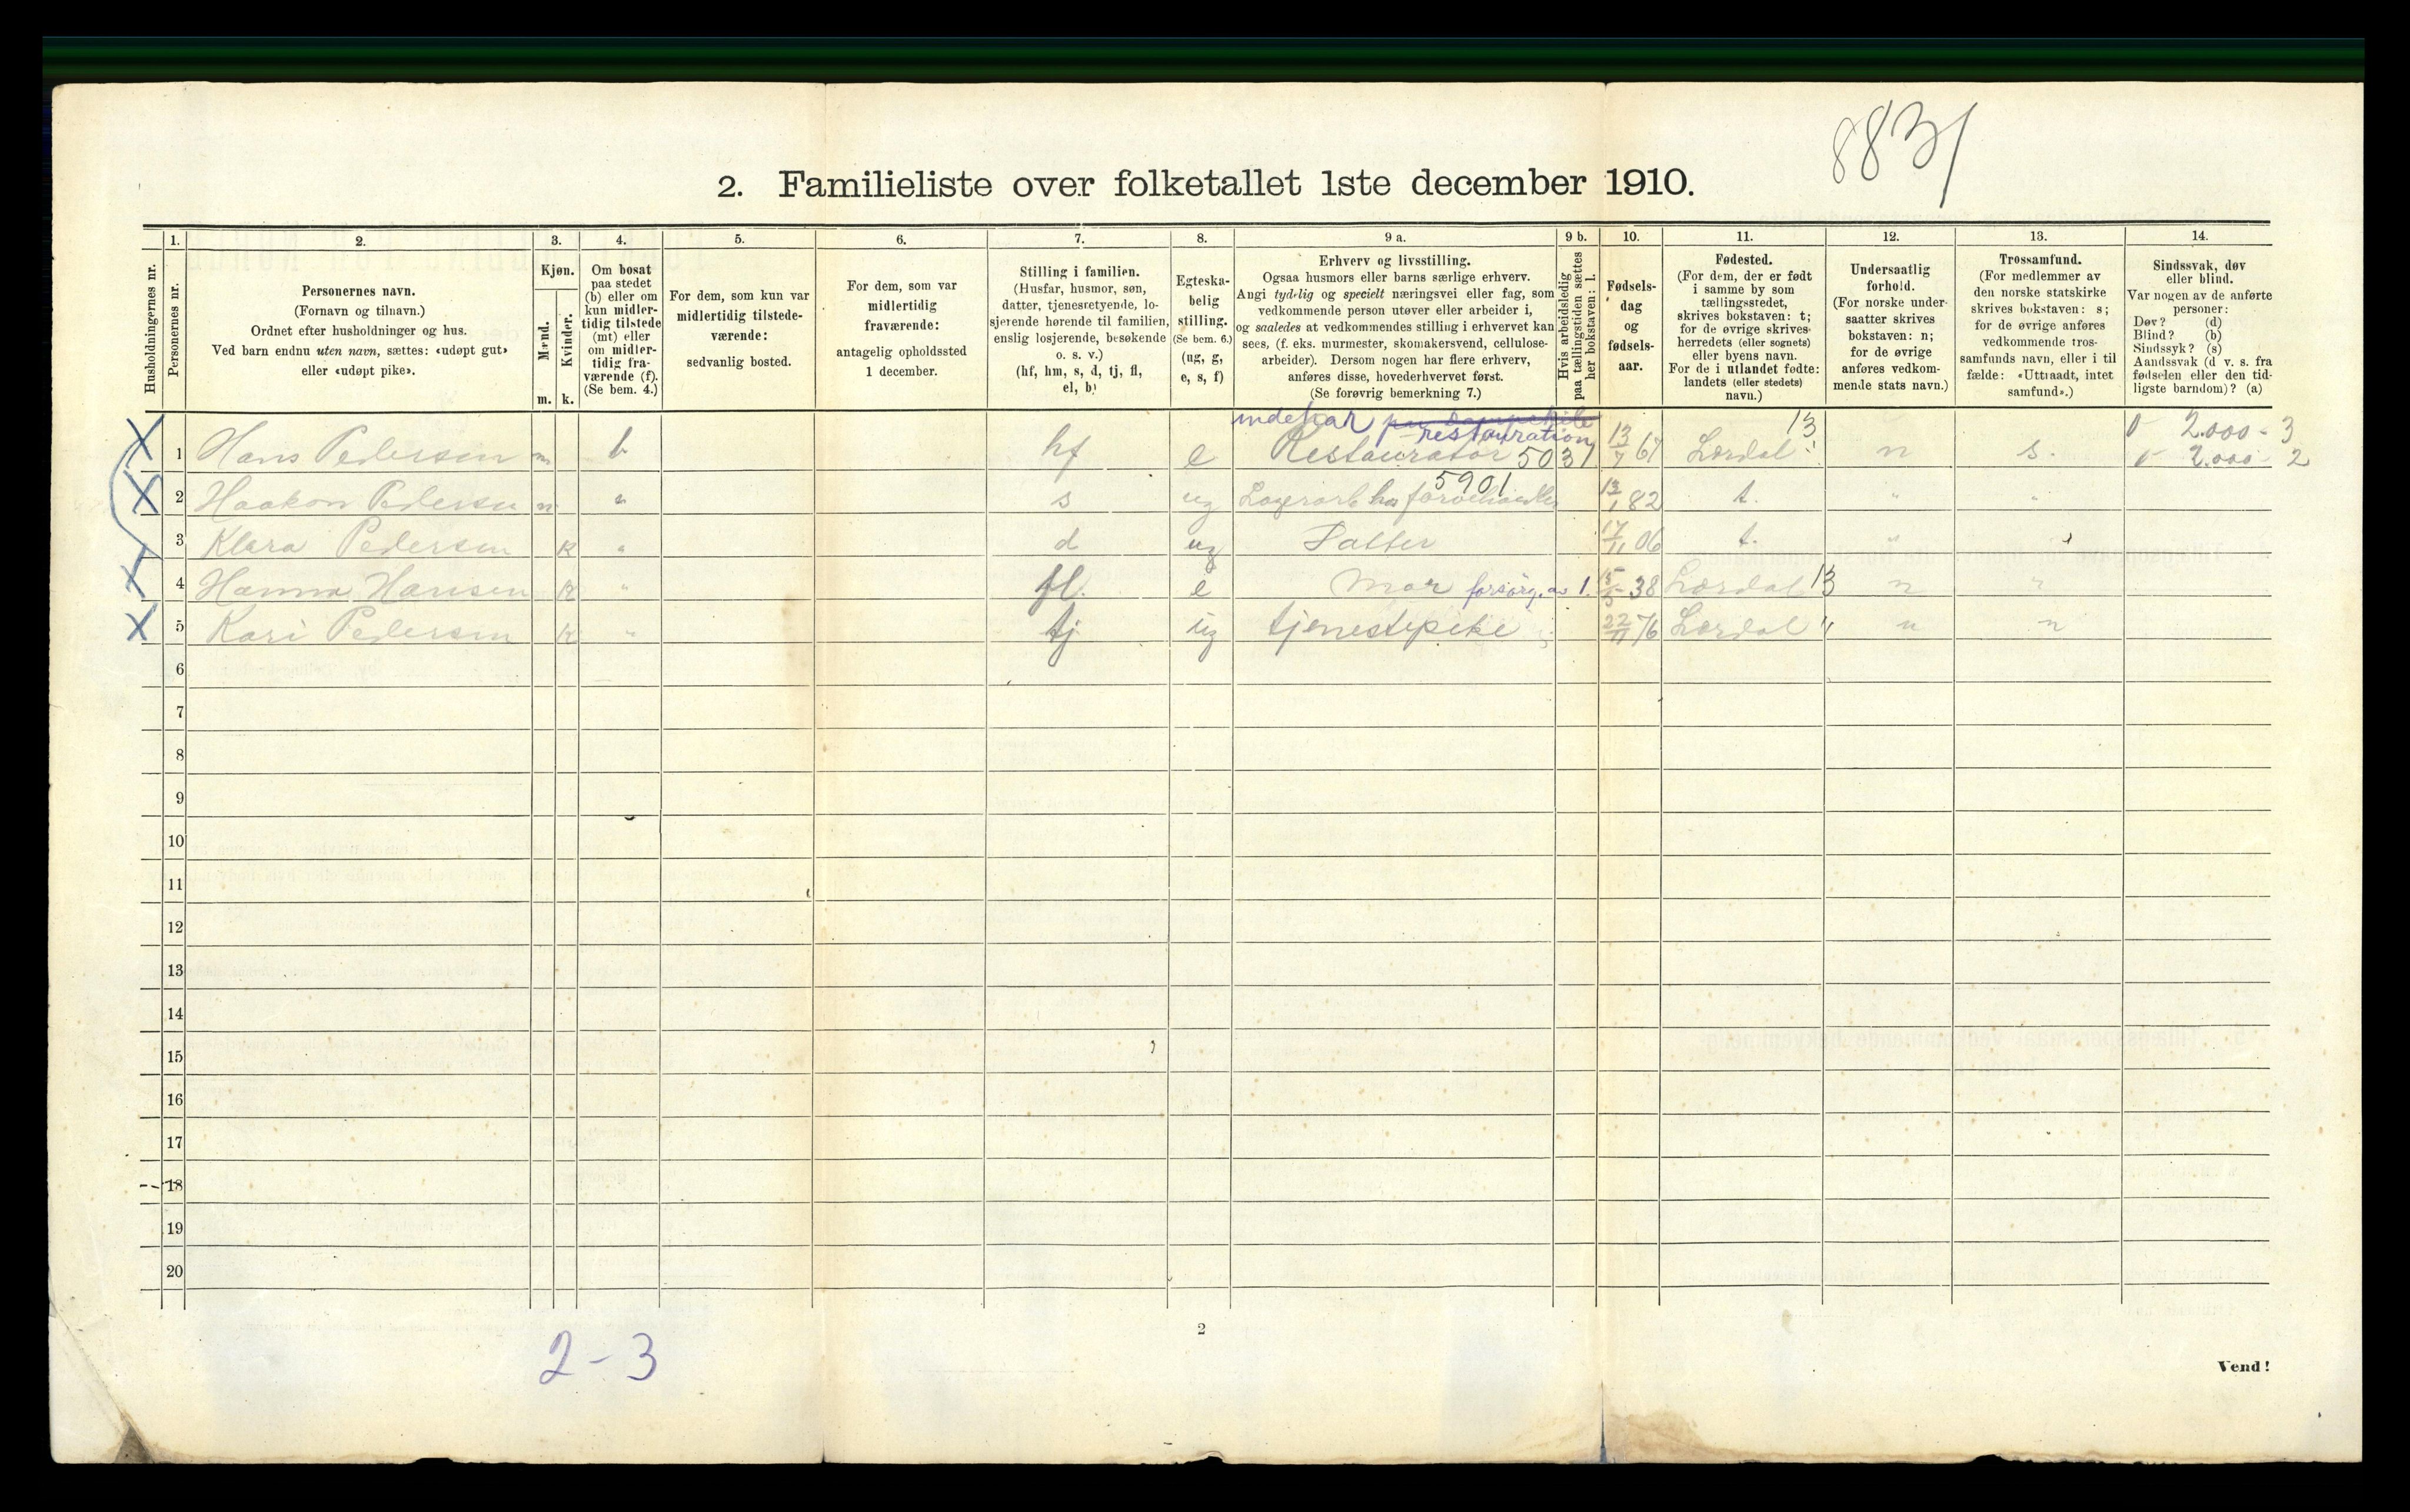 8831
2. Familieliste over folketallet 1ste december 1910.
Husholdningernes nr.
1.
Personernes nr.
2.
Personernes navn.
(Fornavn og tilnavn.)
Ordnet efter husholdninger og hus.
Ved barn endnu uten navn, sættes: «udøpt gut»
eller «udøpt pike».
3.
Kjøn.
Mænd.
m.
Kvinder.
k.
4.
Om bosat
paa stedet
(b) eller om
kun midler-
tidig tilstede
(mt) eller
om midler-
tidig fra-
værende (f).
(Se bem. 4.)
5.
For dem, som kun var
midlertidig tilstede-
værende:
sedvanlig bosted.
6.
For dem, som var
midlertidig
fraværende:
antagelig opholdssted
1 december.
7.
Stilling i familien.
(Husfar, husmor, søn,
datter, tjenestetyende, lo-
sjerende hørende til familien,
enslig losjerende, besøkende
o. s. v.)
(hf, hm, s, d, tj, fl,
el, b)
8.
Egteska-
belig
stilling.
(Se bem. 6.)
(ug, g,
e, s, f)
9 a.
Erhverv og livsstilling.
Ogsaa husmors eller barns særlige erhverv.
Angi tydelig og specielt næringsvei eller fag, som
vedkommende person utøver eller arbeider i,
og saaledes at vedkommendes stilling i erhvervet kan
sees, (f. eks. murmester, skomakersvend, cellulose-
arbeider). Dersom nogen har flere erhverv,
anføres disse, hovederhvervet først.
(Se forøvrig bemerkning 7.)
9 b.
Hvis arbeidsledig
paa tællingstiden sættes
her bokstaven: l.
10.
Fødsels-
dag
og
fødsels-
aar.
11.
Fødested.
(For dem, der er født
i samme by som
tællingsstedet,
skrives bokstaven: t;
for de øvrige skrives
herredets (eller sognets)
eller byens navn.
For de i utlandet fødte:
landets (eller stedets)
navn.)
12.
Undersaatlig
forhold.
(For norske under-
saatter skrives
bokstaven: n;
for de øvrige
anføres vedkom-
mende stats navn.)
13.
Trossamfund.
(For medlemmer av
den norske statskirke
skrives bokstaven: s;
for de øvrige anføres
vedkommende tros-
samfunds navn, eller i til
fælde: «Uttraadt, intet
samfund».)
14.
Sindssvak, døv
eller blind.
Var nogen av de anførte
personer:
Døv? (d)
Blind? (b)
Sindssyk? (s)
Aandssvak (d v. s. fra
fødselen eller den tid-
ligste barndom)? (a)
indehar restauration 13 2.000 - 3
1 Hans Pedersen m b hf e Restauratør 5031 13/7 67 Lærdal n s. 2.000 - 2
5901
2 Haakon Pedersen m " s ug Lagerarb hos farvehandler 82 t. " "
3 Klara Pedersen k " d ug Datter 17/11 06 t. "
4 Hanna Hansen k " fl. e Mor forsörg. av 1. 15/5 38 Lærdal 13 n "
5 Kari Pedersen k " tj ug tjenestepike 22/11 76 Lærdal " n n
6
7
8
9
10
11
12
13
14
15
16
17
18
19
20
2 - 3
2
Vend!